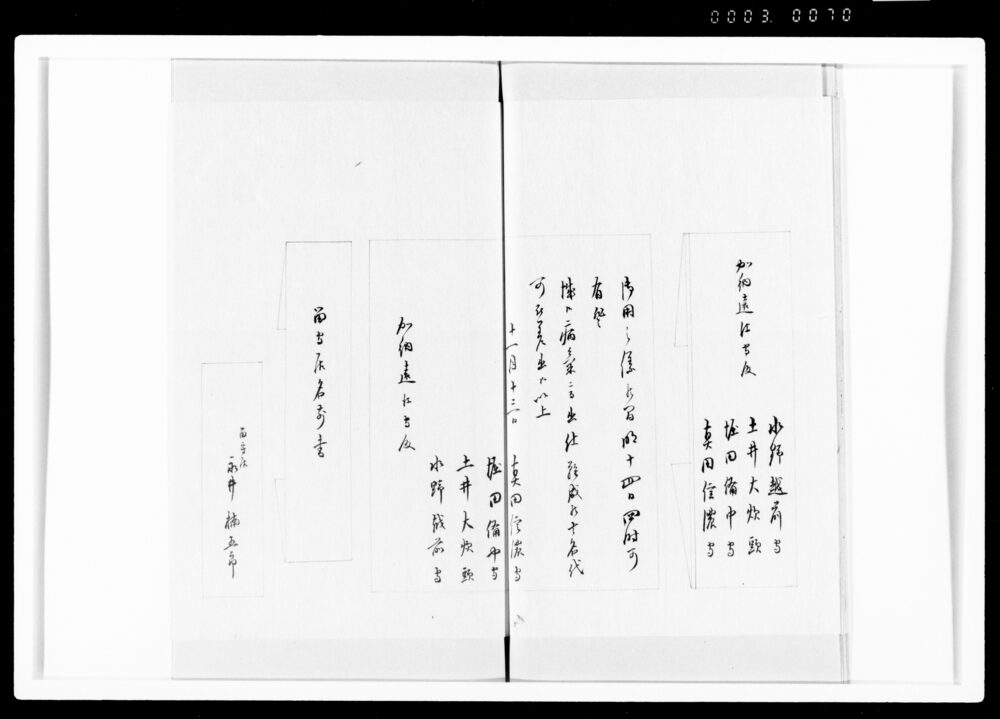 0003. 0070
加納遠江守殿
水野越前守
土井大炊頭
堀田備中守
真田信濃守
御用之儀候間明十四日四時可
有登
城候病気ニ而出仕難成候ハ名代
可被差出候以上
十一月十三日
真田信濃守
堀田備中守
土井大炊頭
水野越前守
加納遠江守殿
留守居名前書
留守居
永井 楠五郎